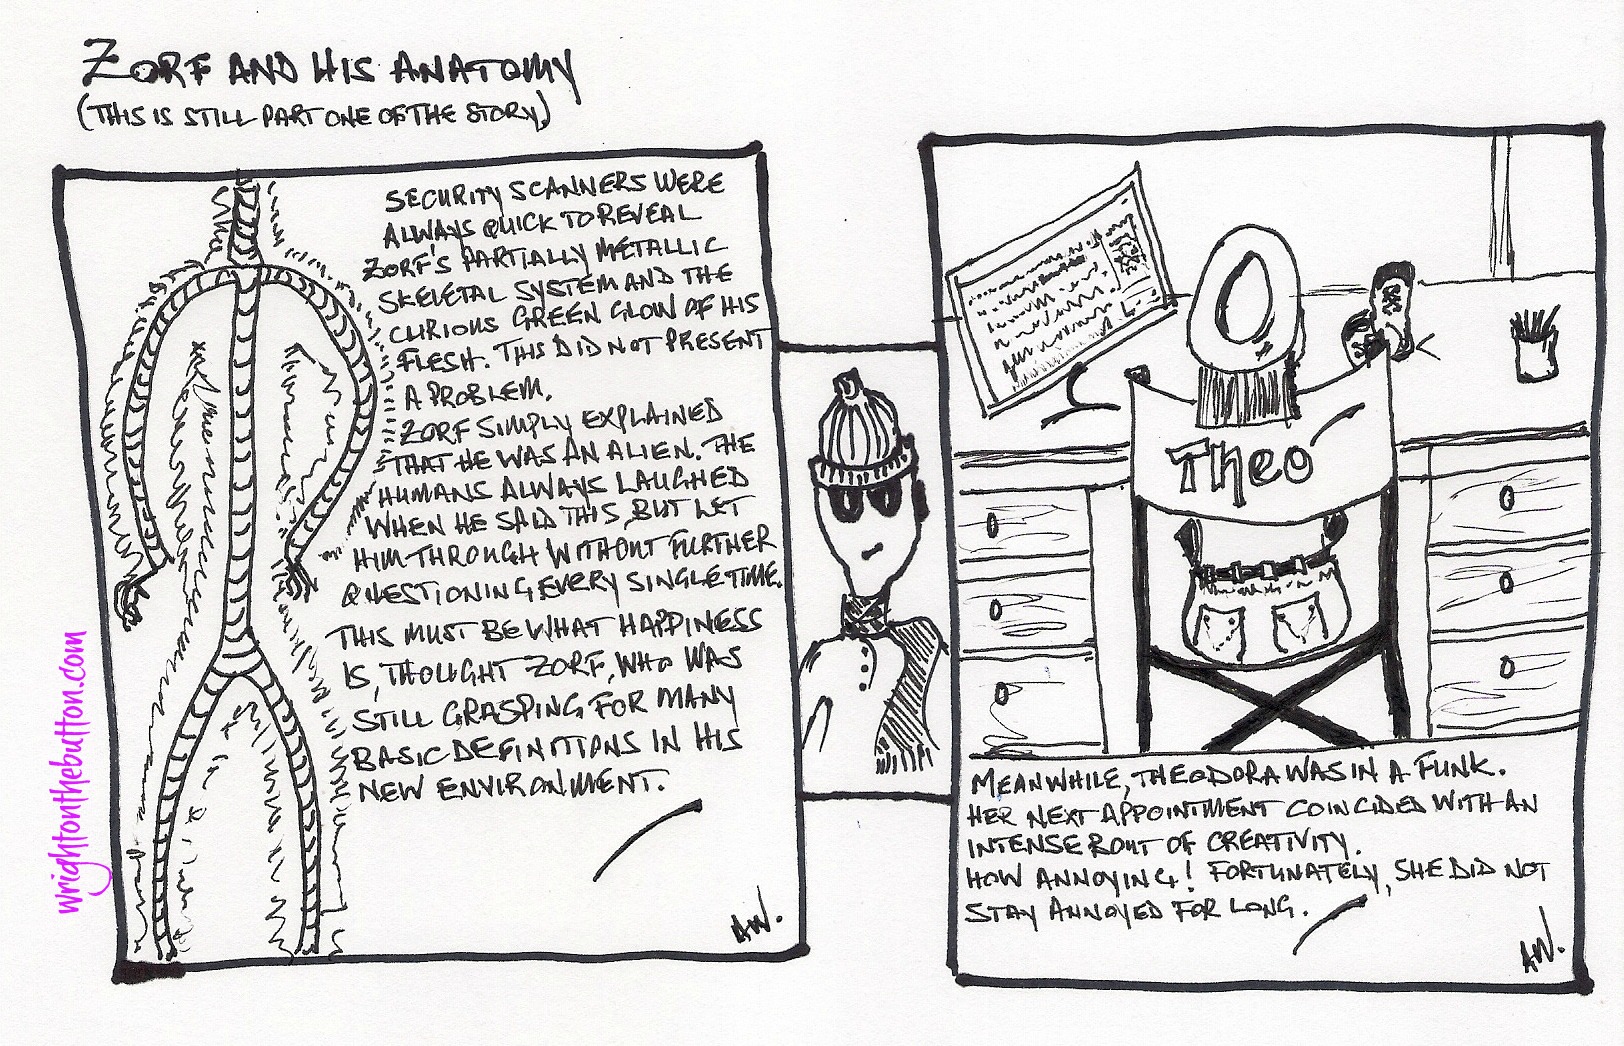 ZORF AND HIS ANATOMY
(THIS IS STILL PART ONE OF THE STORY)
SECURITY SCANNERS WERE
ALWAYS QUICK TO REVEAL
ZORF'S PARTIALLY METALLIC
SKELETAL SYSTEM AND THE
CURIOUS GREEN GLOW OF HIS
FLESH. THIS DID NOT PRESENT
A PROBLEM.
ZORF SIMPLY EXPLAINED
THAT HE WAS AN ALIEN. THE
HUMANS ALWAYS LAUGHED
WHEN HE SAID THIS, BUT LET
HIM THROUGH WITHOUT FURTHER
QUESTIONING EVERY SINGLE TIME.
THIS MUST BE WHAT HAPPINESS
IS, THOUGHT ZORF, WHO WAS
STILL GRASPING FOR MANY
BASIC DEFINITIONS IN HIS
NEW ENVIRONMENT.
AW.
Theo
MEANWHILE, THEODORA WAS IN A FUNK.
HER NEXT APPOINTMENT COINCIDED WITH AN
INTENSE BOUT OF CREATIVITY.
HOW ANNOYING! FORTUNATELY, SHE DID NOT
STAY ANNOYED FOR LONG.
AW.
wrightonthebutton.com